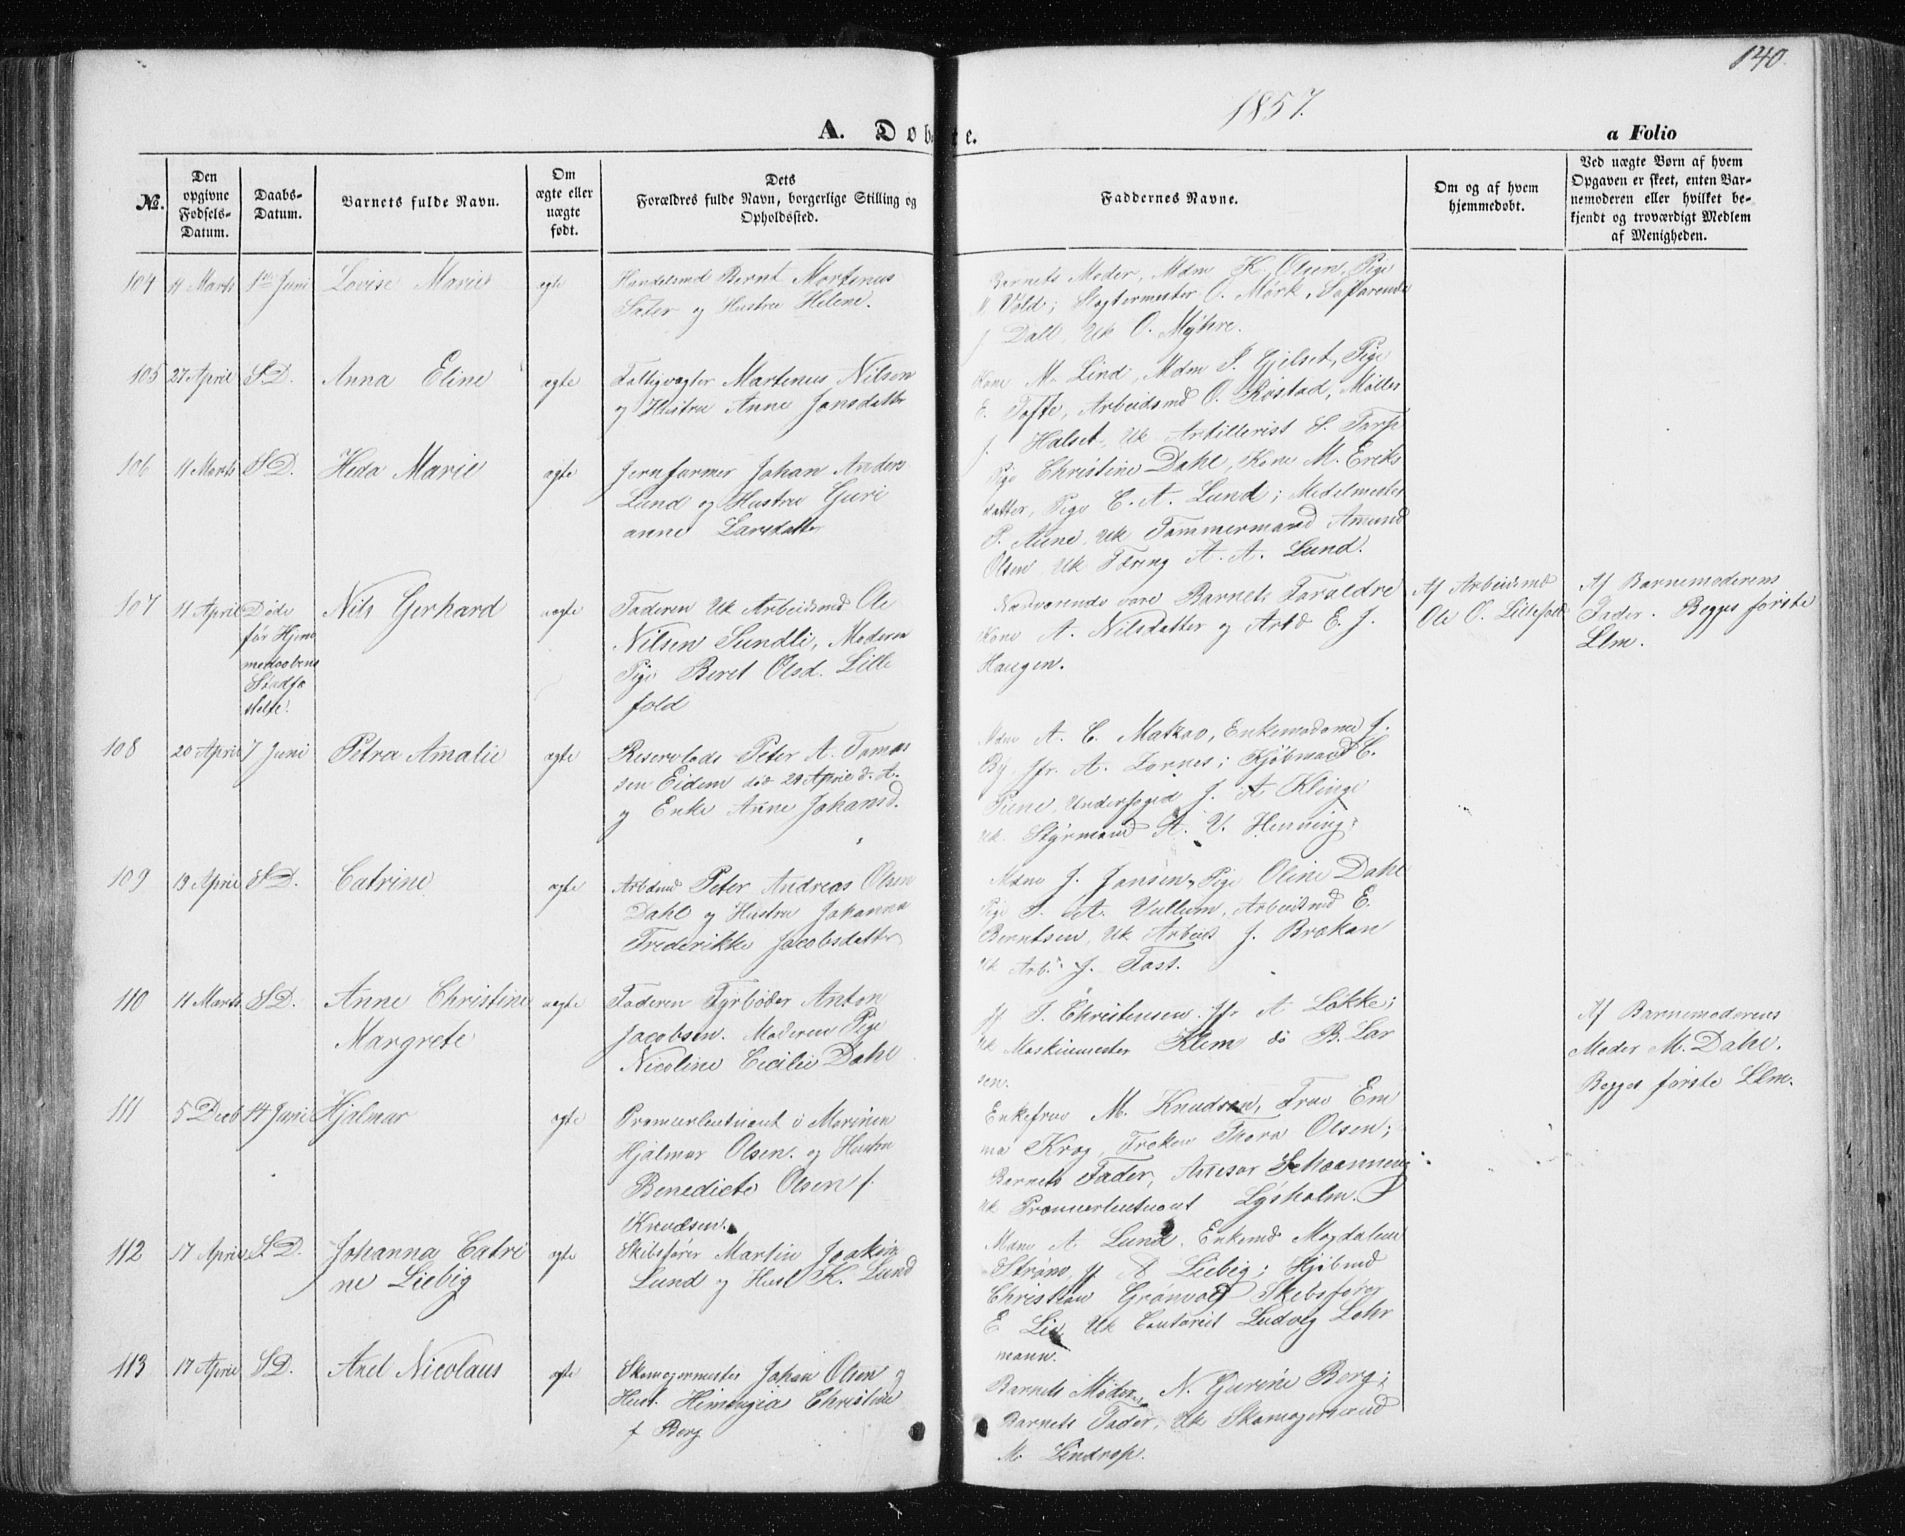 140.
1857.
A. Døbte.
a Folio
No.
Den opgivne Fødsels-Datum.
Daabs-Datum.
Barnets fulde Navn.
Om ægte eller uægte født.
Dets Forældres fulde Navn, borgerlige Stilling og Opholdssted.
Faddernes Navne.
Om og af hvem hjemmedøbt.
Ved uægte Børn af hvem Opgaven er skeet, enten Barnemoderen eller hvilket bekjendt og troværdigt Medlem af Menigheden.
104 11 Marts 1ste Juni Lovise Marie ægte
Handelsmd Bernt Martinus
Sæter og Hustru Helene.
Barnets Moder, Mdm K. Olsen, Pige
Vold; Slagtermester O. Mørk,
J Dall, Uk O. Myhre.
105 27 April S.D. Anna Eline ægte
Fattigvogter Martinus Nilsen
og Hustru Anne Jonsdatter
Kone M. Lind, Mdm J. Gjelset, Pige
E. Tofte, Arbeidsmd O. Rostad, Møller
J. Halset, Uk Artillerist S. Tarp
106 11 Marts S.D. Heda Marie ægte
Jernformer Johan Anders
Lund og Hustru Guri
anne Larsdatter
Pige Christine Dahl, Kone M. Eriks
datter, Pige C. A. Lund; Medelmester
P. Aune, Uk Tømmermand Amund
Olsen Uk Tæring A. A. Lund.
107 11 April Døde
før Hjem
medaabens
Stadfæ
stelse.
Nils Gerhard uægte
Faderen Uk Arbeidsmd Ole
Nilsen Sundli, Moderen
Pige Beret Olsd. Lille
fold
Nærværende vare Barnets Forældre
Kone A. Nilsdatter og Arbd E. J.
Haugen.
Af Arbeidsmd
Ole O. Lillefold
Af Barnemoderens
Fader. Begges første
Llm.
108 20 April 7 Juni Petra Amalie ægte
Reservelods Peter A. Tomas
sen Eidem død 29 April d. A.
og Enke Anne Johansd.
Mdm A. C. Matzao, Enkemadame J.
By, Jfr. A. Lornes; Kjøbmand C.
Piene, Underfoged J. A. Klinge
Uk. Styrmand A. V. Henning.
109 19 April S.D. Catrine ægte
Arbdmd Peter Andreas Olsen
Dahl og Hustru Johanna
Frederikke Jacobsdatter
Mdm J. Jansen, Pige Oline Dahl
Pige S. A. Vullum, Arbeidsmd E.
Berntsen, Uk Arbeids J. Brekan
Uk Arb. J. Fast.
110 11 Marts S.D. Anne Christine
Margrete uægte
Faderen Fyrbøder Anton
Jacobsen. Moderen Pige
Nicoline Cecilie Dahl
Jf. T. Christensen Jfr A Løkke;
Uk Maskinmester Klem do B. Lar
sen.
Af Barnemoderens
Moder M. Dahl.
Begges første Llm.
111 5 Decb 14 Juni Hjalmar ægte
Premierleutnant i Marinen
Hjalmar Olsen. og Hustru
Benedicte Olsen f.
Knudsen.
Enkefrue M. Knudsen, Frue Em
ma Krog, Frøken Thora Olsen;
Barnets Fader, Assesor Schaanning;
Uk Premierleutnant Lysholm.
112 17 April S.D. Johanna Catri
ne Liebig ægte
Skibsfører Martin Joakim
Lund og Hust K. Lund
Mdme A Lund, Enkemd Magdalene
Strøm, Jf A Liebig; Kjøbmd
Christian Grønvold Skibsfører
E. Lie, Uk Contorist Ludvig Lehr
mann.
113 17 April S.D. Axel Nicolaus ægte
Skomagermester Johan Olsen og
Hust. Himengia Christine
f Berg
Barnets Moder, N. Gurine Berg;
Barnets Fader, Uk Skomagersvend
M. Lindrop.